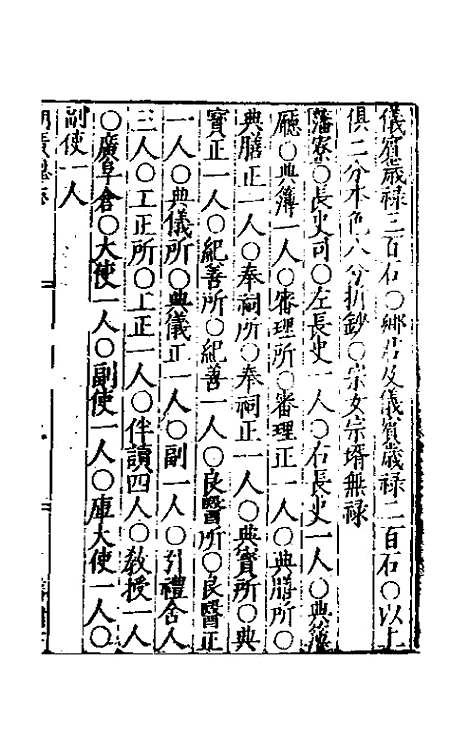 儀賔歲禄三百石○鄉君及儀賔歲禄二百石○以上
俱二分本色八分折鈔○宗女宗壻無禄
藩寮○長史司○左長史一人○右長史一人○典簿
廳○典簿一人○審理所○審理正一人○典膳所○
典膳正一人○奉祠所○奉祠正一人○典寶所○典
寶正一人○紀善所○紀善一人○良醫所○良醫正
一人○典儀所○典儀正一人○副一人○引禮舍人
三人○工正所○工正一人○伴讀四人○敎授一人
○廣阜倉○大使一人○副使一人○庫大使一人○
副使一人